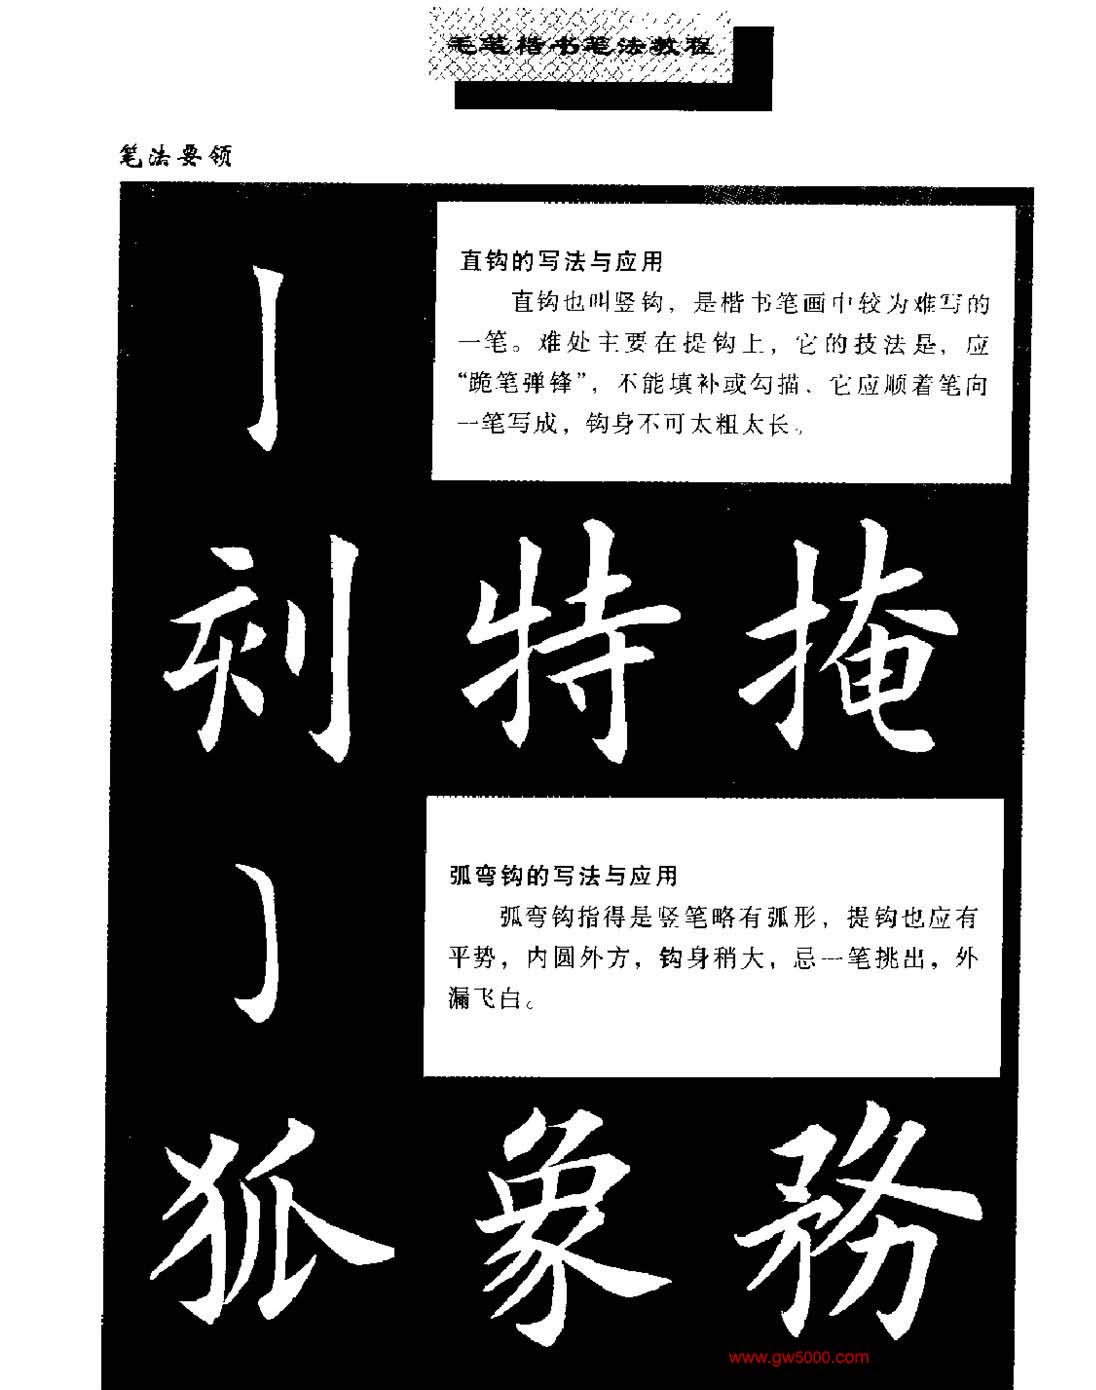 毛笔楷书笔法教程
笔法要领
直钩的写法与应用
直钩也叫竖钩，是楷书笔画中较为难写的
一笔。难处主要在提钩上，它的技法是，应
“跪笔弹锋”，不能填补或勾描、它应顺着笔向
一笔写成，钩身不可太粗太长。
亅
刻 特 掩
弧弯钩的写法与应用
弧弯钩指得是竖笔略有弧形，提钩也应有
平势，内圆外方，钩身稍大，忌一笔挑出，外
漏飞白。
狐 象 務
www.gw5000.com